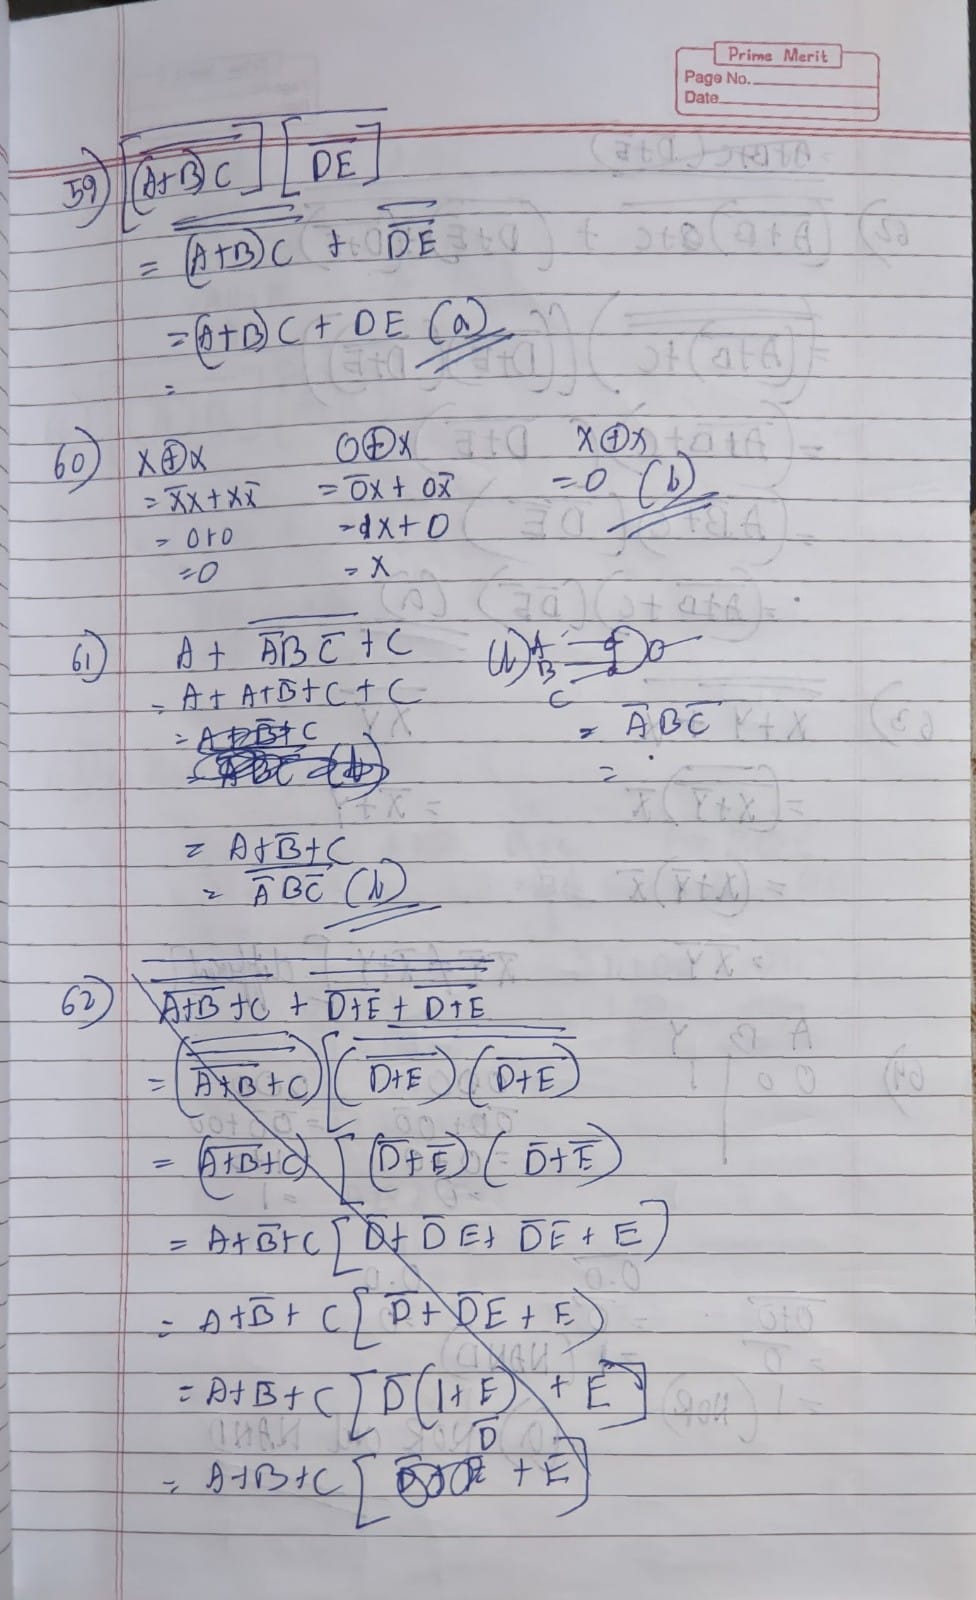 Prime Merit
Page No.
Date
59) [(A+B)C] [D̅E̅]
= (A+B)C + DE
= (A+B)C + DE (a)
=
60) X⊕X 0⊕X X⊕X
= X̅X + XX̅ = 0̅X + 0X̅ = 0 (b)
= 0+0 = 1X + 0
= 0 = X
61) A + A̅BC̅ + C (b) A
B
C
= A + A + B̅ + C + C = A̅BC̅
= A+B̅+C
=
= A+B̅+C
= A̅BC̅ (b)
62) A+B + C + D+E + D+E
= (A+B + C) [(D+E) (D+E)
= (A+B+C) [(D̅+E̅) (D̅+E̅)
= A+B̅+C [D̅ + D̅E + D̅E + E]
= A+B̅+C [D̅ + D̅E + E)
= A+B+C [D̅(1+E) + E]
D̅
= A+B+C [ + E]